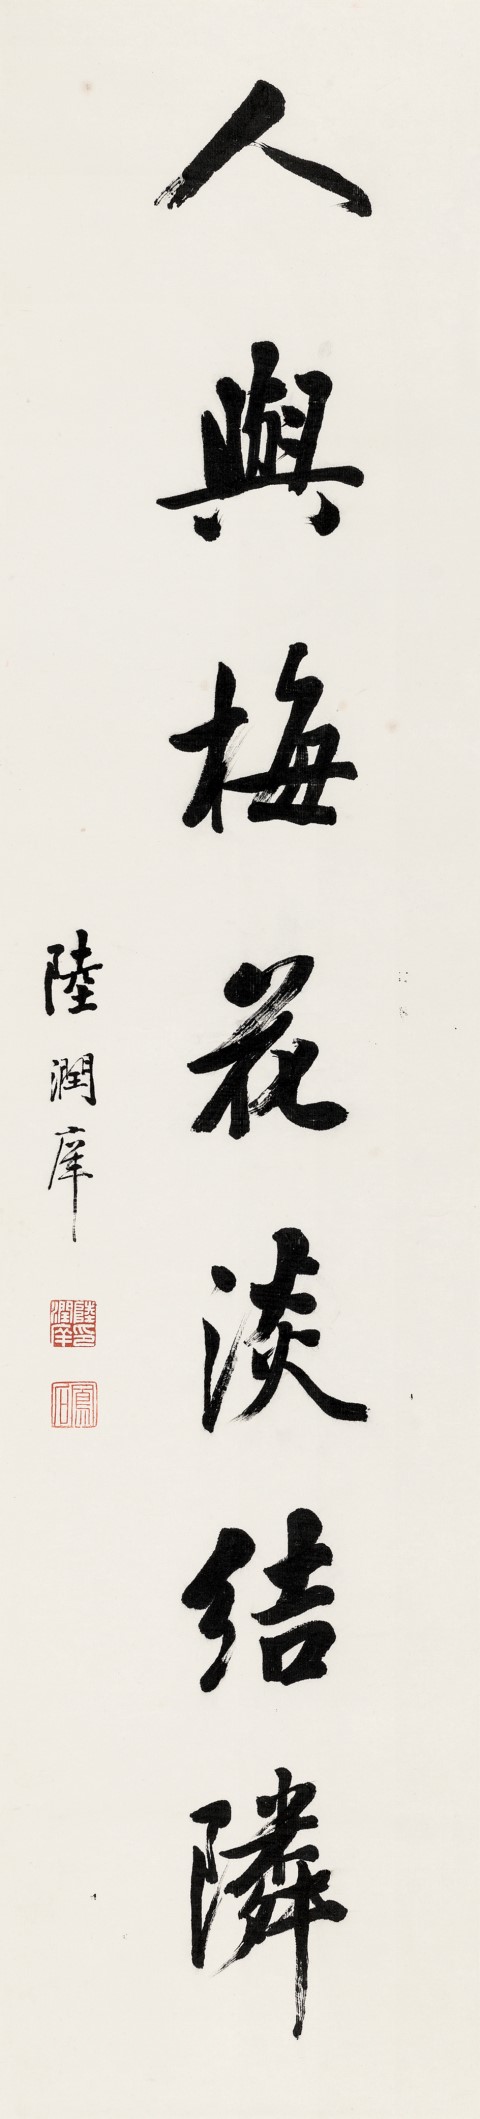 人與梅花淡結隣
陸潤庠
陸印潤庠
鳳石